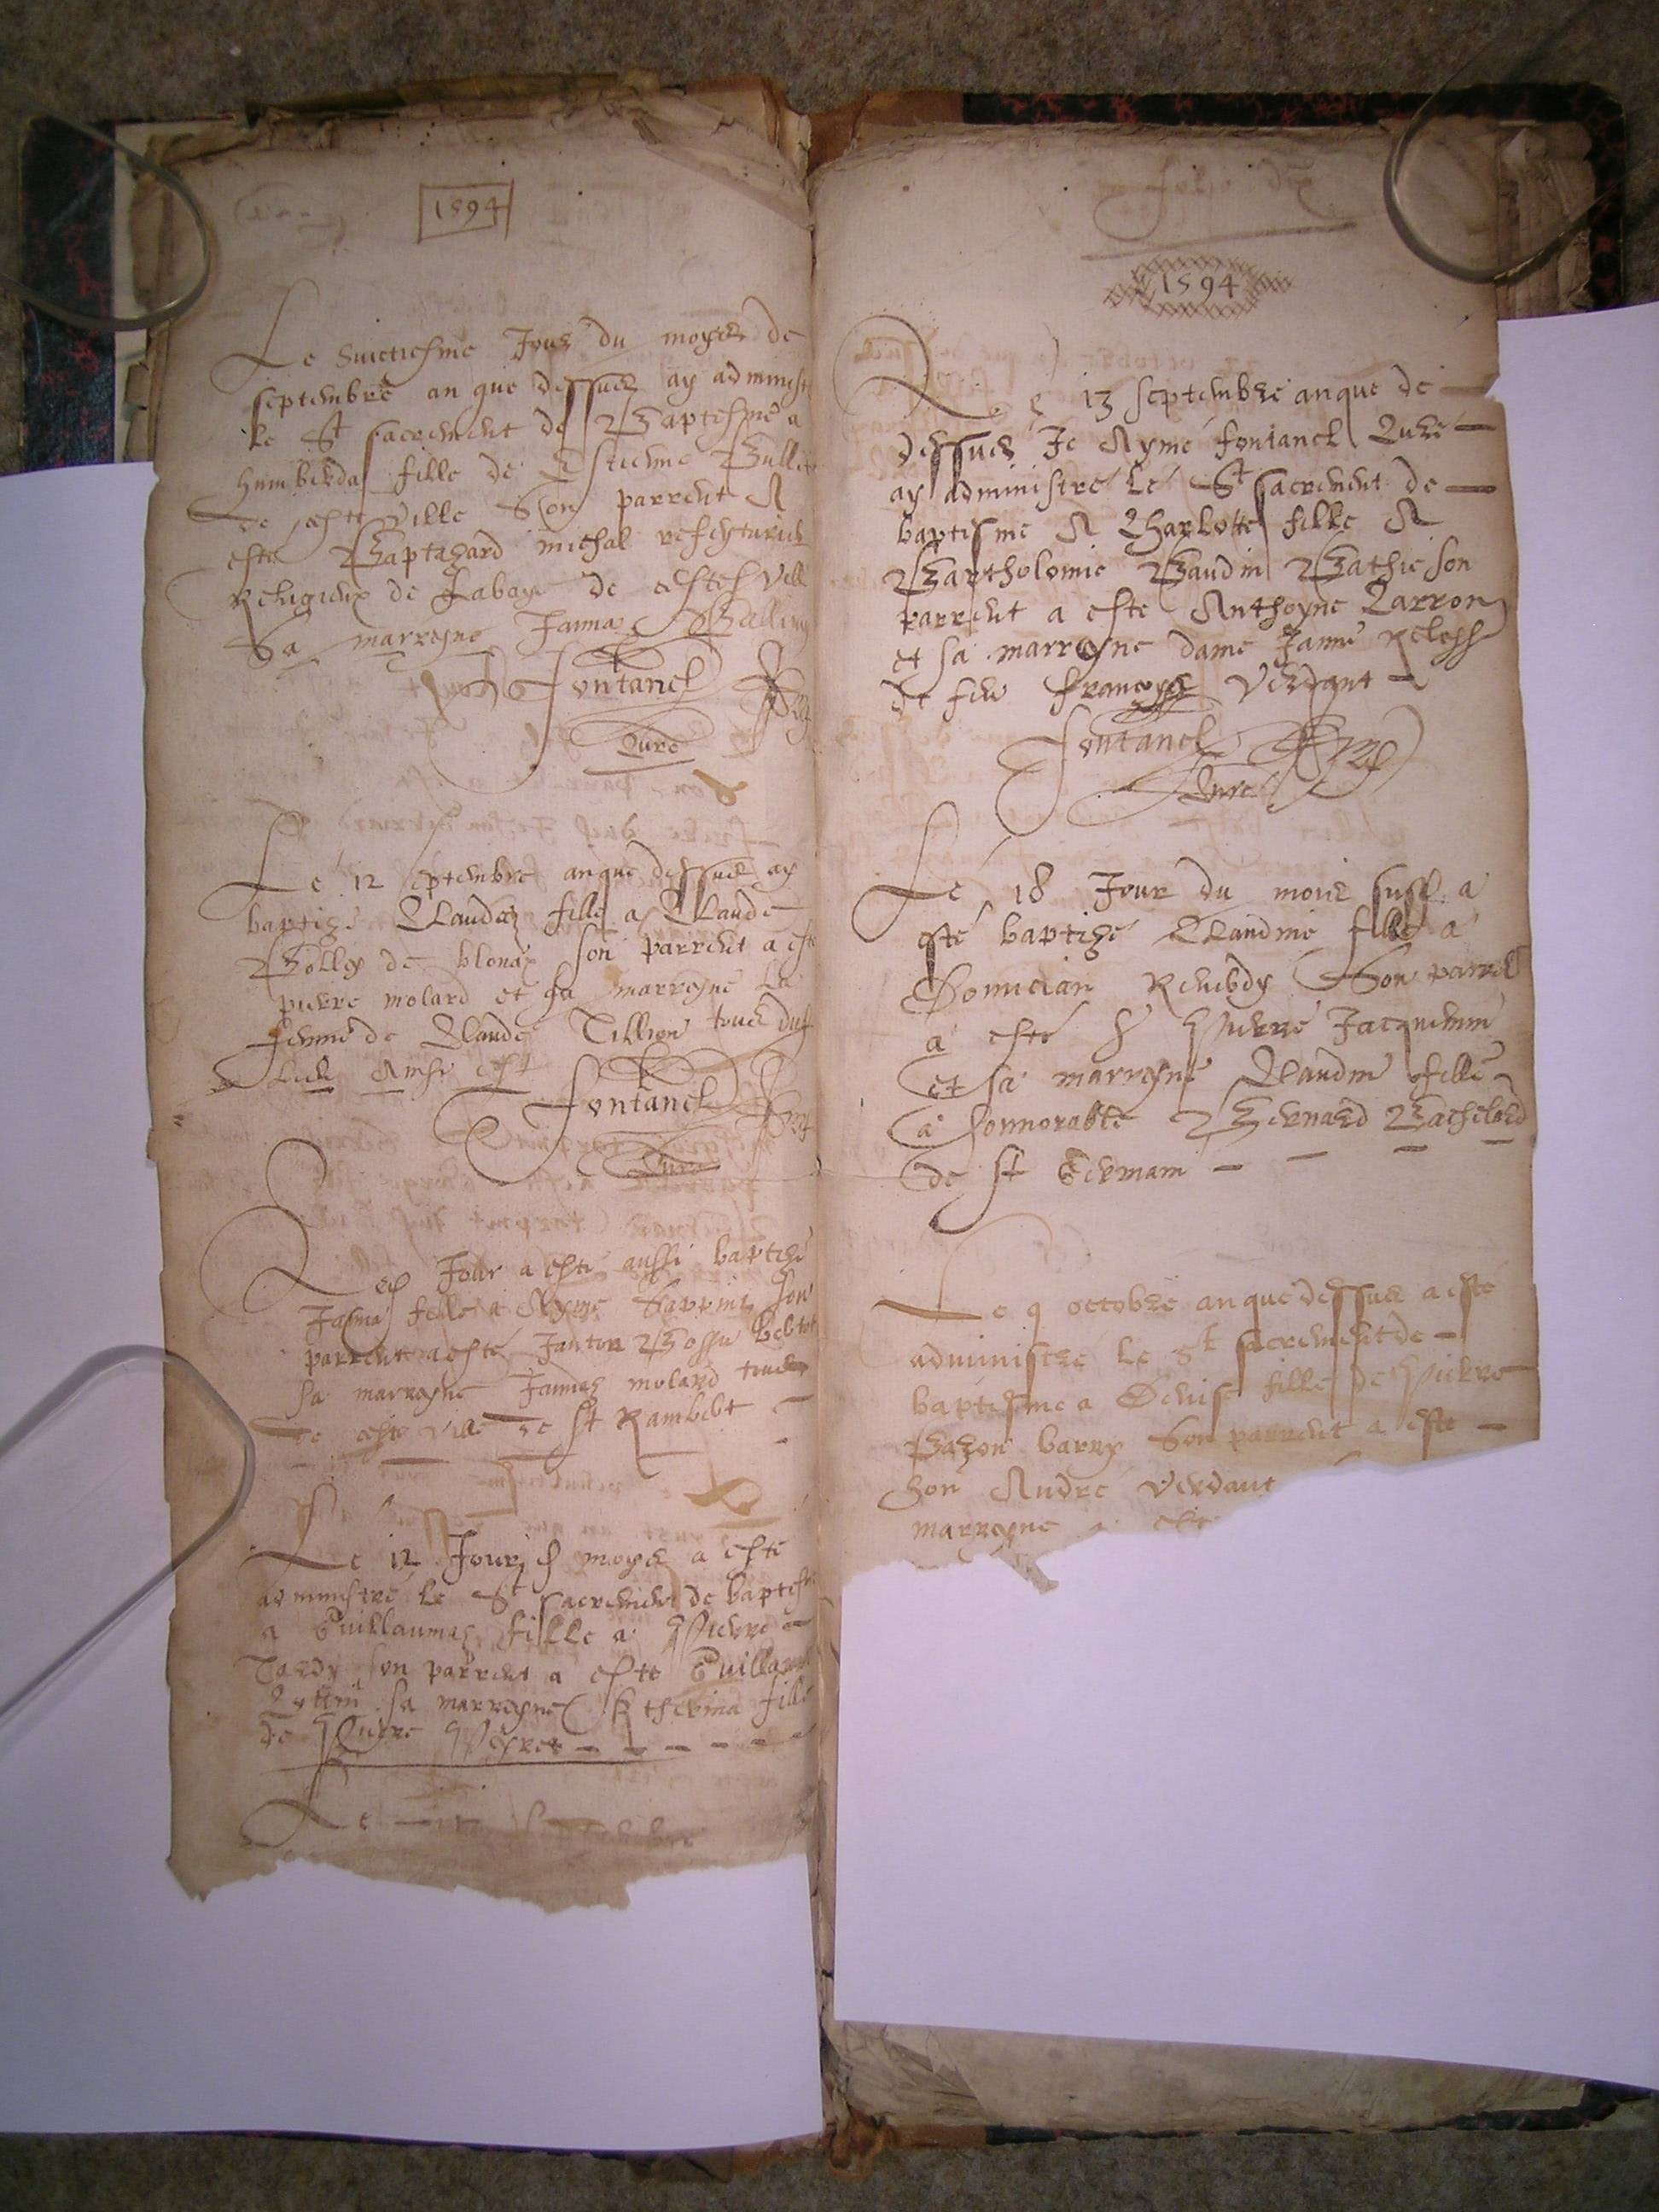 1594
Le huictiesme Jour du moys de
septembre an que dessus ay administ
le St sacrement de Baptesme a
humberda fille de Estienne Bullie
de ceste ville Son parrent A
este Baptazard michal
Religieux de Labaye de ceste ville
Sa marreyne Janna
Fontanel
Curé
Le 12 septembre an que dessus ay
baptizé Clauda fille a Claude
de blonax son parrent a este
pierre molard et sa marreyne la
femme de Claude Tillion tous dud
lieu Ainsi est
Fontanel
Curé
Led Jour a esté aussi baptizé
Janna fille a Ayme Sappin son
parrent a esté Janton Bossu
sa marreyne molard tous
de ceste ville de st Rambert
Le 12 Jour d moys a este
administré le St sacrement de baptesm
a Guillauma fille a Pierre
Tardy son parrent a este Guillaume
sa marreyne Katherina fille
de Pierre Peyret
Le septembre
1594
Le 13 septembre an que de
dessus Je Aymé fontanel Curé
ay administré le St sacrement de
baptisme A Charlotte fille A
Bartholomie Baudin Bathie son
parrent a este Anthoyne Carron
et sa marreyne dame Janne
de feu françoys verdant
Fontanel
Curé
Le 18 Jour du mois susd a
esté baptizé Claudine fille a
Domician Reverdy Son parrent
a esté h Pierre Jacquemin
et sa marreyne Claudine fille
a honnorable Bernard Bachelard
de st Germain
Le 9 octobre an que dessus a esté
administré le St sacrement de
baptisme a Denise fille de Pierre
barry Son parrent a este
hon André verdant
marreyne a este